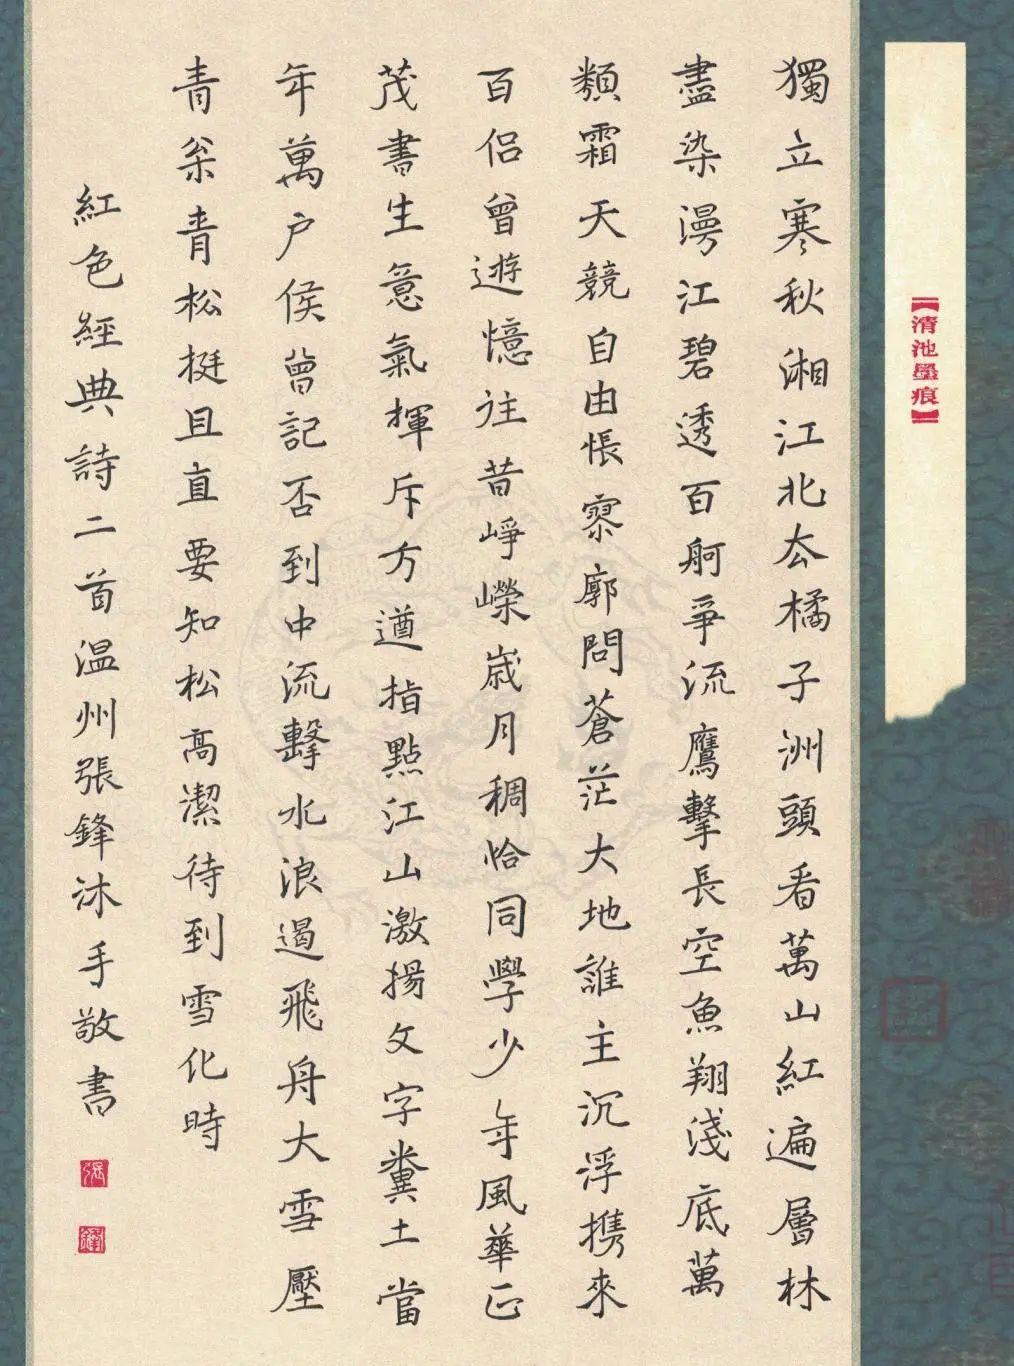 【清池墨痕】
獨立寒秋湘江北去橘子洲頭看萬山紅遍層林
盡染漫江碧透百舸爭流鷹擊長空魚翔淺底萬
類霜天競自由悵寥廓問蒼茫大地誰主沉浮携來
百侶曾遊憶往昔崢嶸歲月稠恰同學少年風華正
茂書生意氣揮斥方遒指點江山激揚文字糞土當
年萬户侯曾記否到中流擊水浪遏飛舟大雪壓
青枀青松挺且直要知松高潔待到雪化時
紅色經典詩二首温州張鋒沐手敬書
張
鋒